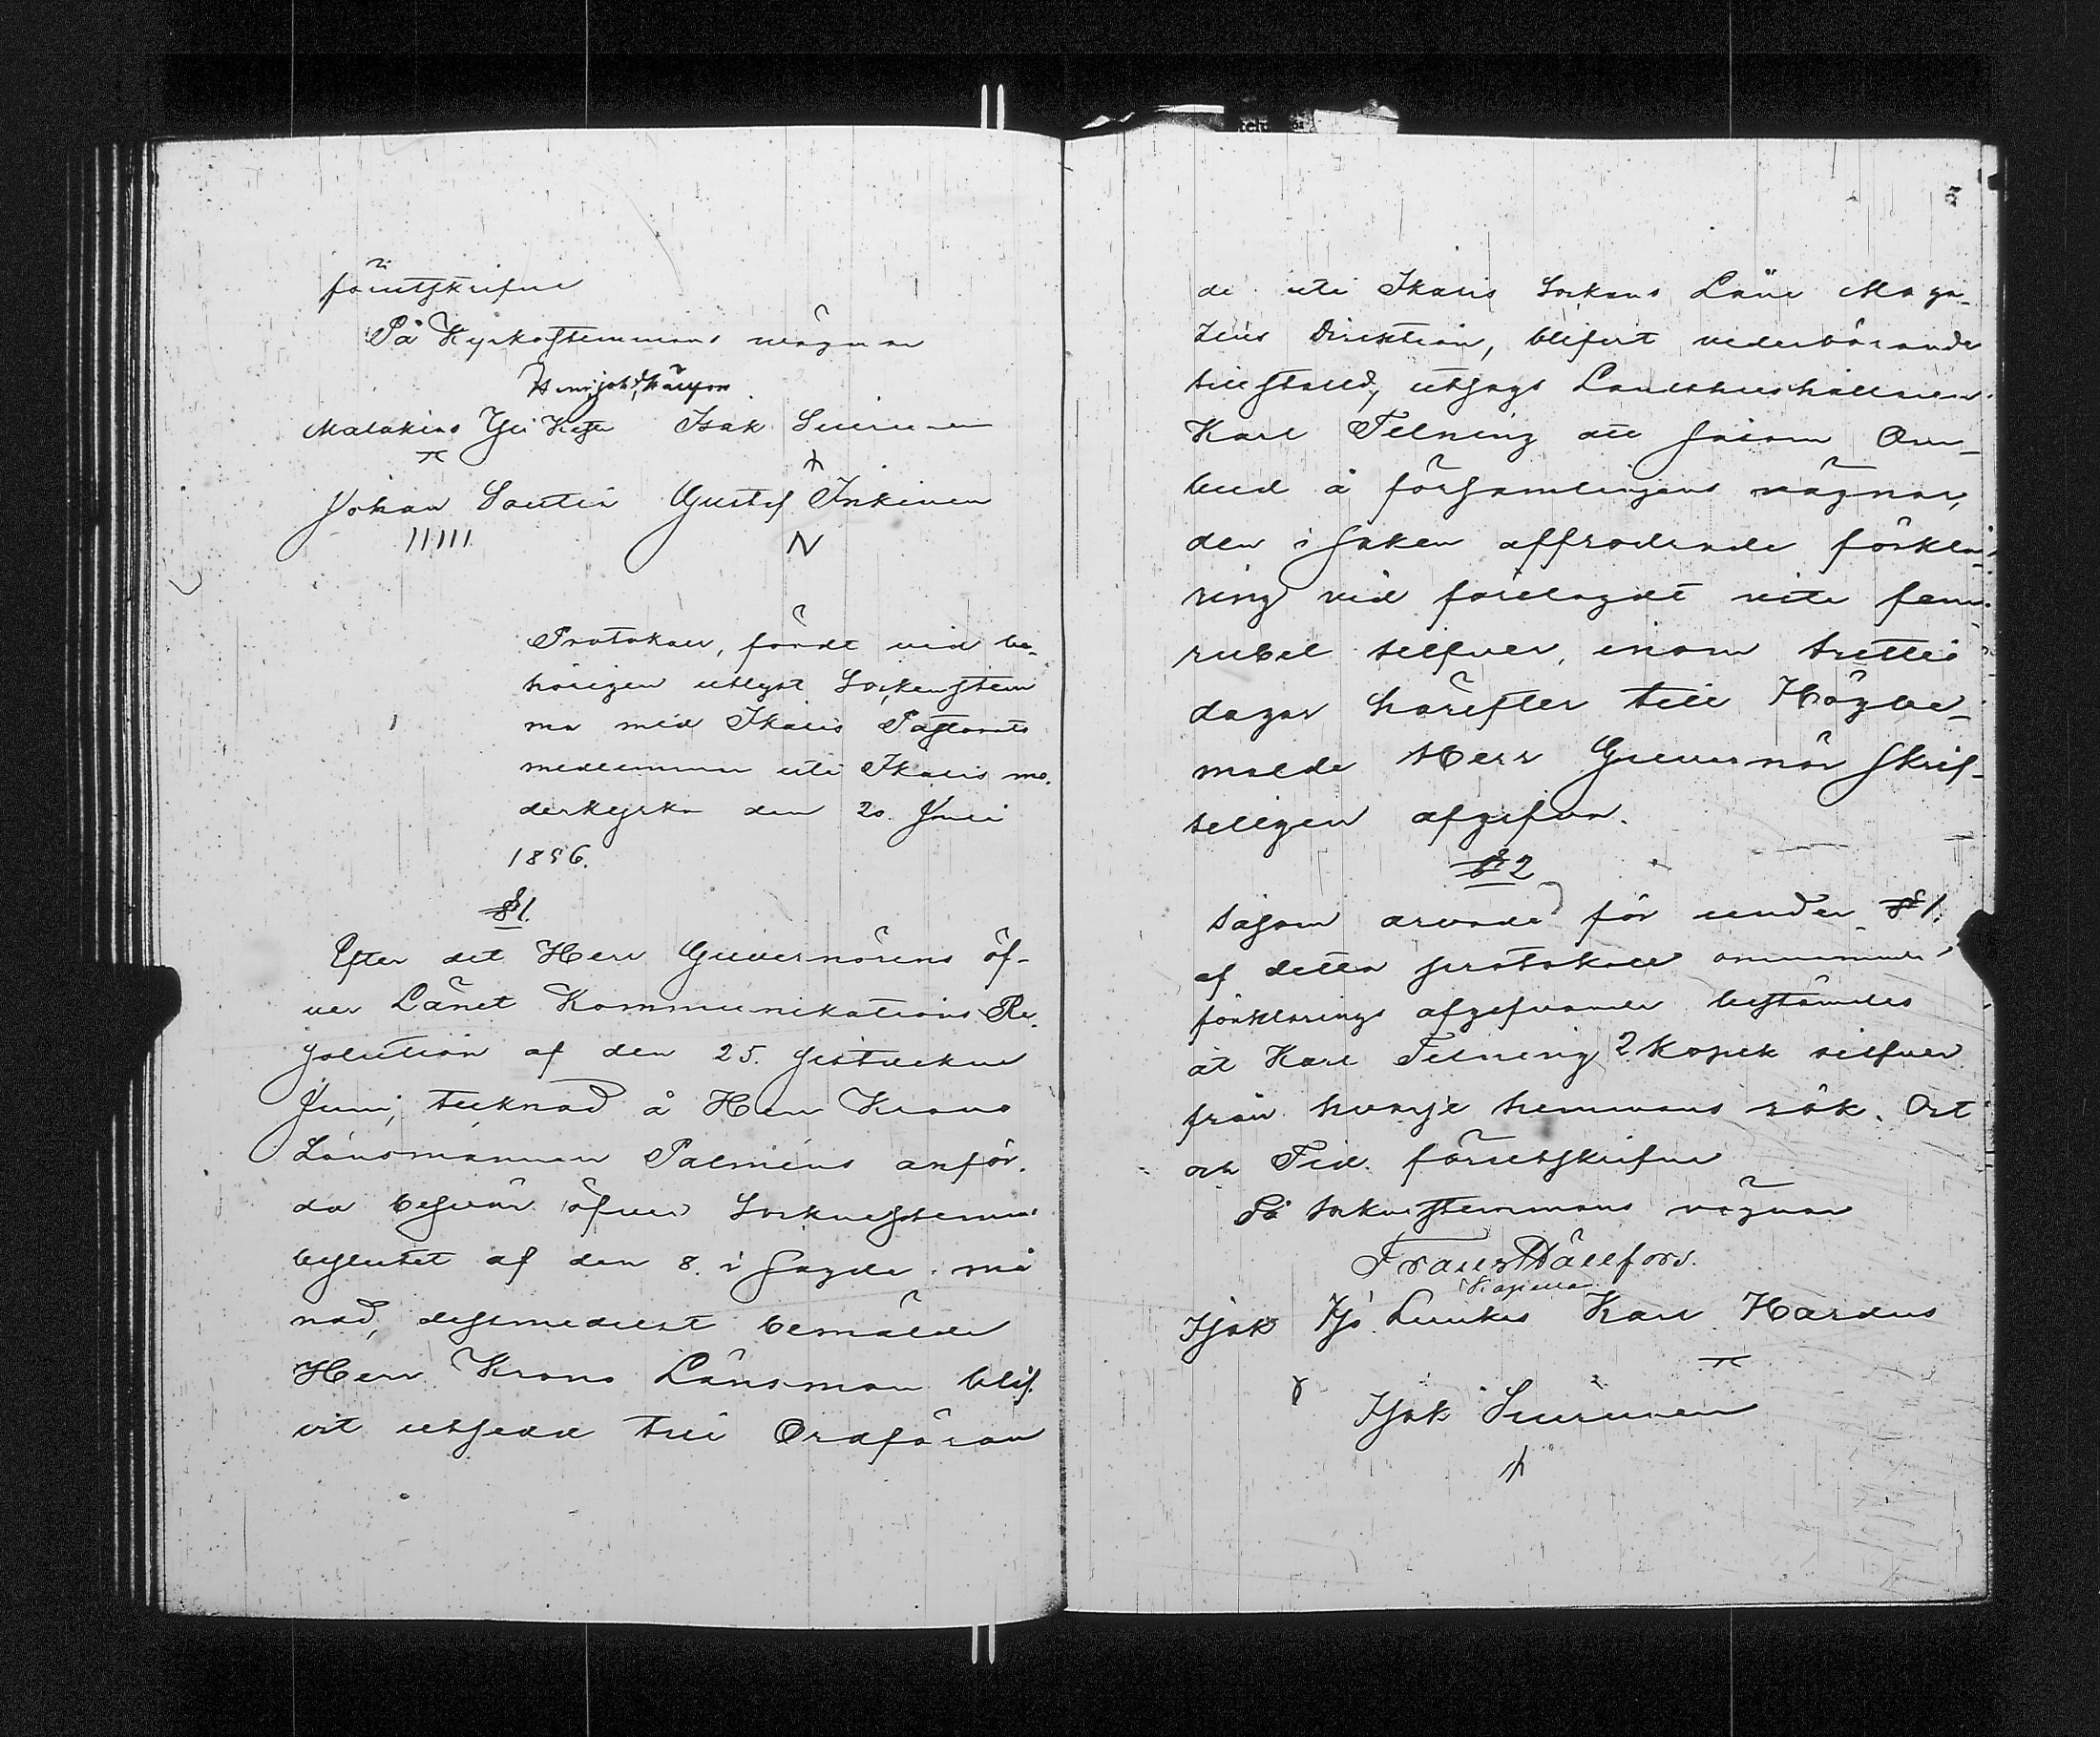 föruttskrifne
På Kyrkostemmans vägnar
Malakias Yli Isak Suurinen
Johan Soutia Gustef Inkinen
IIIIII N
Protokoll, fördt vid be-
hörigen utlyst Sockenstem
ma med Ikalis Pastorats
medlemmar uti Ikalis mo-
derkyrka den 20 Juli
1856.
§ 1.
Efter det Herr Guvernörens öf-
ver Länet Kommunikations Re-
solution af den 25. sistvekne
Juni, tecknad å Herr Krono
Länsmannen Palméns anför-
da besvär öfver Sockenstemmo
beslutet af den 8. i sagde må
nad, dessmedelst bemälde
Herr Krono Länsman blif-
vit utsedd till Ordföran
de uti Ikalis Sockens Låne Maga-
zins Direktion, blifvit vederbörande
tillställd, utsågs Landthushållaren
Karl Telning att såsom Om-
bud å församlingens vägnar,
den i saken affrodrade förkla-
ring vid förelagdt vite fem
rubel silfver, inom trettio
dagar härefter till Högbe-
mälde Herr Guvernör skrif-
teligen afgifva.
§ 2
Såsom arvode för under § 1.
af detta protokoll omnämnde
förklarings afgifvande bestämdes
åt Karl Telning 2 Kopek silfver
från hvarje hemmans rök. Ort
och Tid förutskrifne
På Sockenstemmans vägnar
Frans Hällfors.
Kapellan
Isak Iso Luukas Karl Hardus
Isak Suurinen